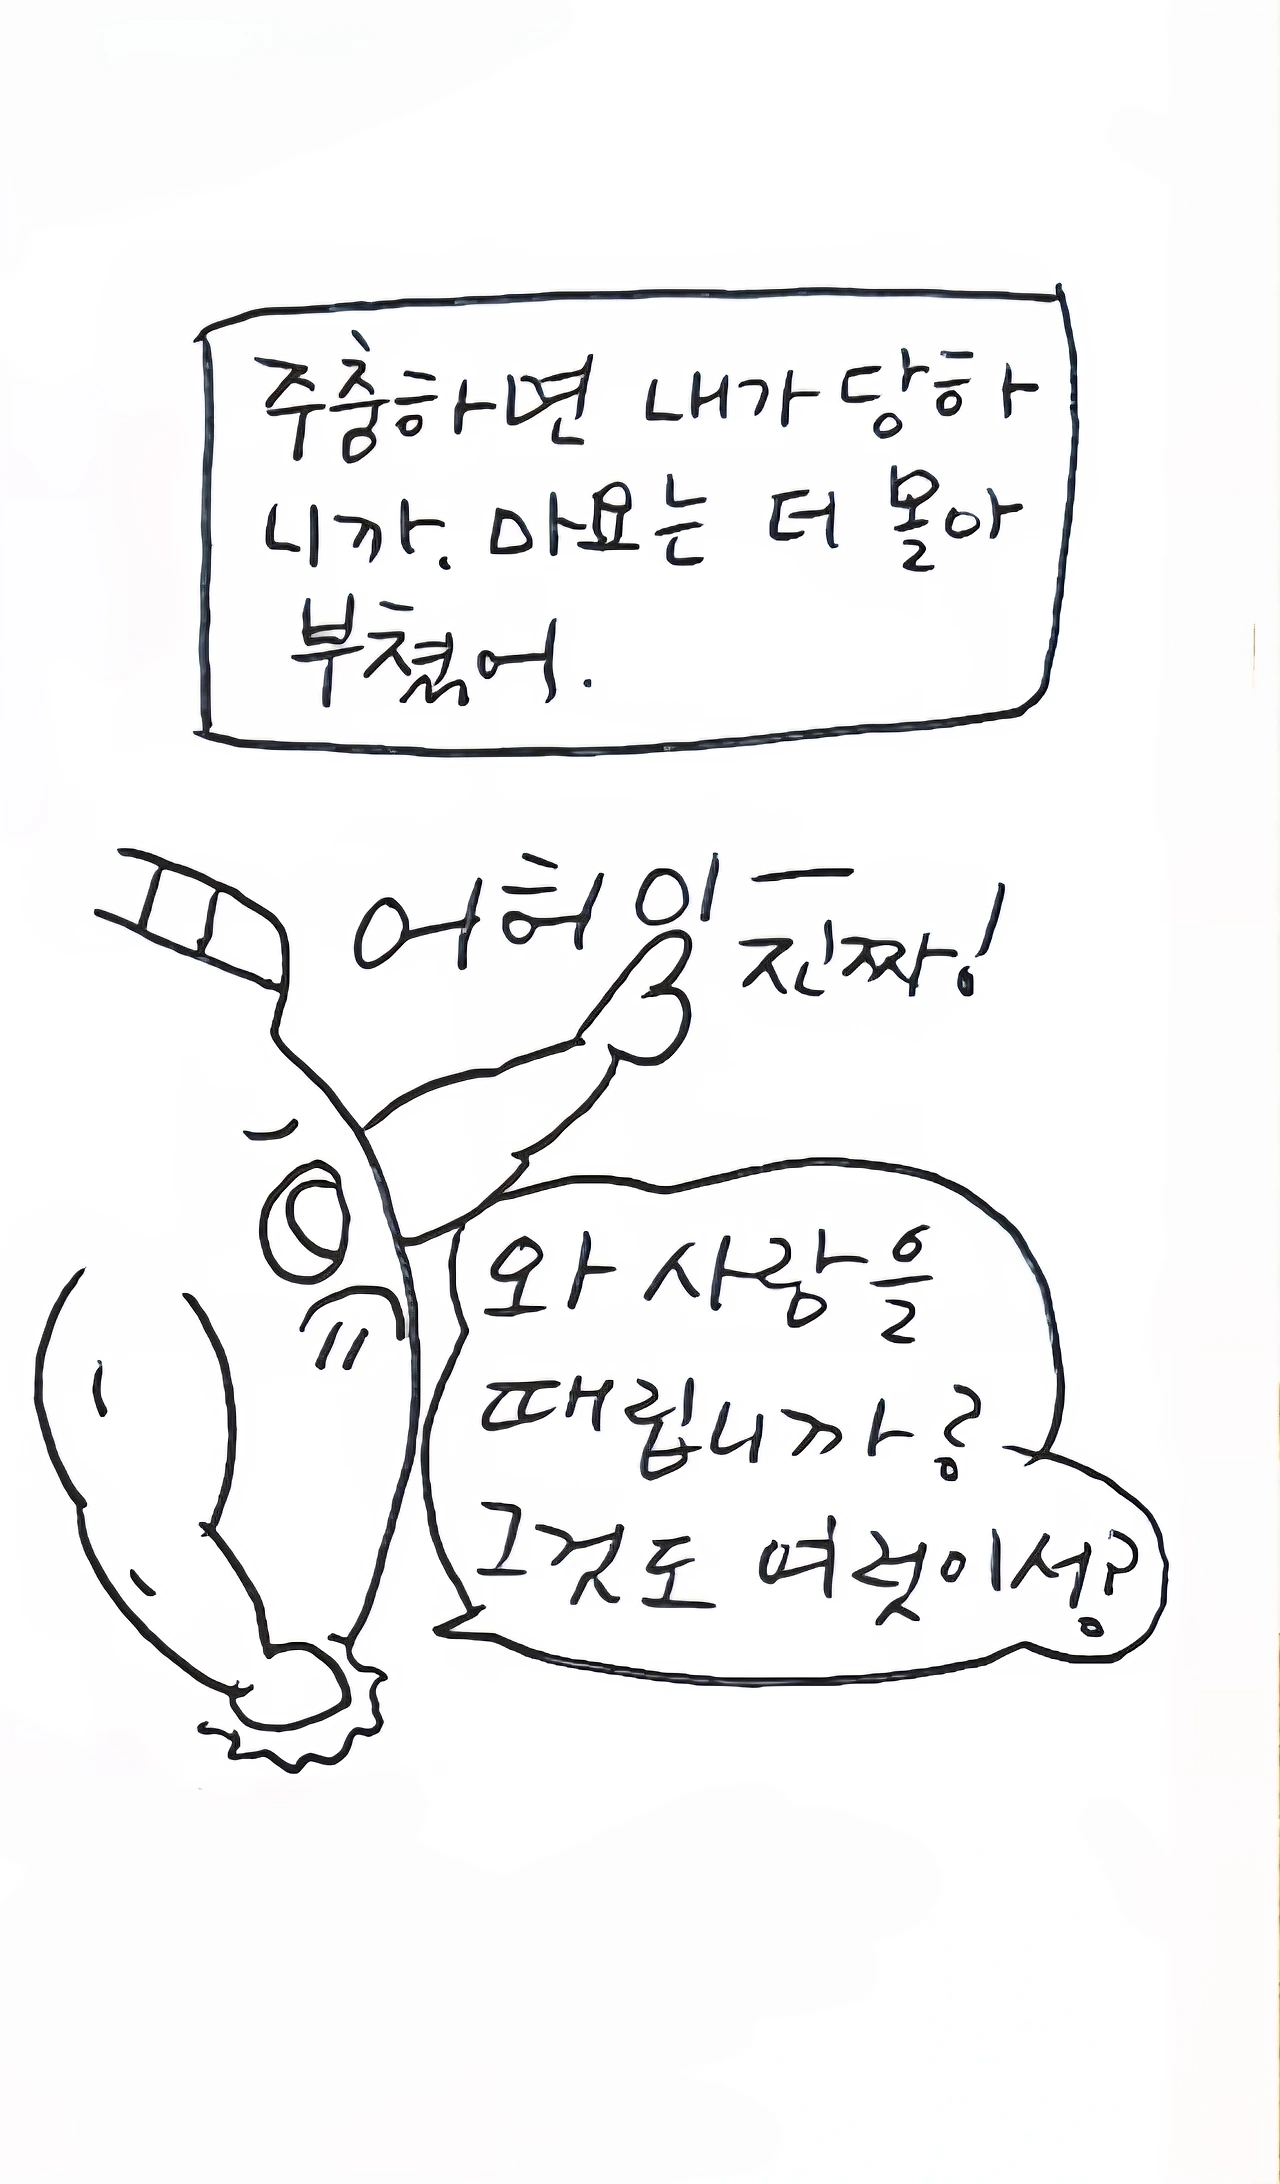 주춤하면 내가 당하
니까. 마요는 더 몰아
부쳤어.
어허이ー
진짜!
와 사람을
때립니까?
그것도 여럿이서?